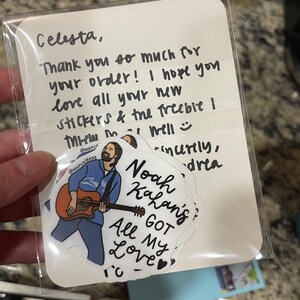 Celesta,
Thank you so much for
your order! I hope you
love all your new
stickers & the freebie I
well
sincerely,
Andrea
Noah
Kahan's
GOT
All My
Love